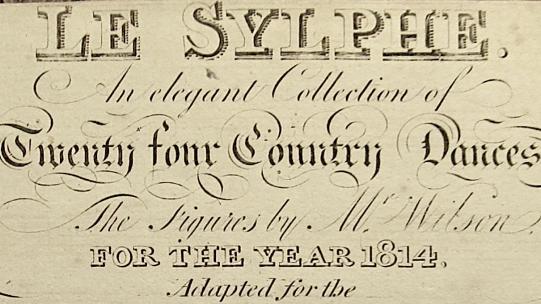 LE SYLPHE.
An elegant Collection of
Twenty four Country Dances
The Figures by Mr. Wilson.
FOR THE YEAR 1814.
Adapted for the